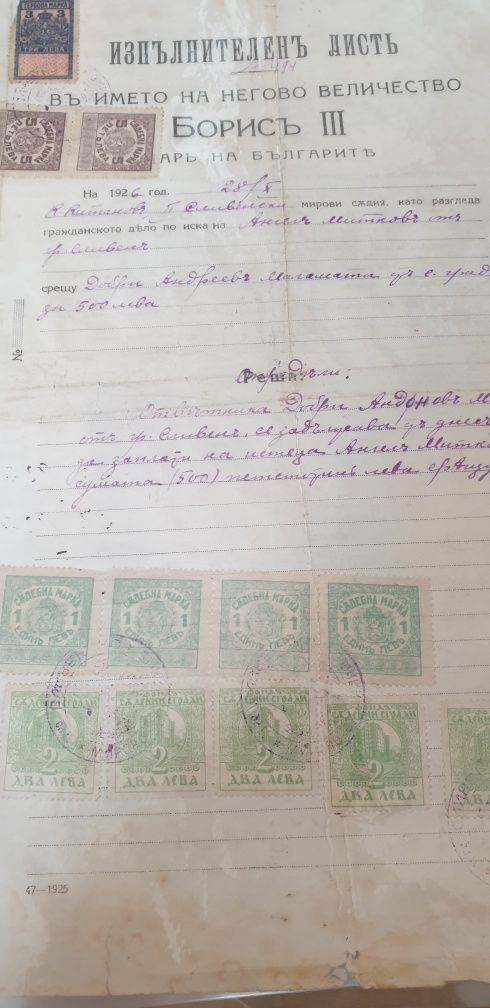 ГЕРБОВА МАРКА
3 3
ТРИ ЛЕВА
ИЗПЪЛНИТЕЛЕНЪ ЛИСТЪ
ВЪ ИМЕТО НА НЕГОВО ВЕЛИЧЕСТВО
БОРИСЪ III
ЦАРЬ НА БЪЛГАРИТѢ
СѪДЕБНА МАРКА
5 5
СѪДЕБНА МАРКА
5 5
На 1926 год. 28/X
П Сливенски мирови сѫдия, като разгледа
гражданското дѣло по иска на Ангелъ Митковъ отъ
гр. Сливенъ
срещу Добри Андреевъ отъ с.
за 500 лева
№
Реши:
Отвѣтника Добри Андоновъ М
отъ гр. Сливенъ, се задължава отъ днесъ
да заплати на истеца Ангелъ Митк
сумата (500) петстотинъ лева
СѪДЕБНА МАРКА
1 1
ЕДИНЪ ЛЕВЪ
СѪДЕБНА МАРКА
1 1
ЕДИНЪ ЛЕВЪ
СѪДЕБНА МАРКА
1 1
ЕДИНЪ ЛЕВЪ
СѪДЕБНА МАРКА
1 1
ЕДИНЪ ЛЕВЪ
ФОНДЪ
СѪДЕБНИ СГРАДИ
2
ДВА ЛЕВА
ФОНДЪ
СѪДЕБНИ СГРАДИ
2
ДВА ЛЕВА
ФОНДЪ
СѪДЕБНИ СГРАДИ
2
ДВА ЛЕВА
ФОНДЪ
СѪДЕБНИ СГРАДИ
2
ДВА ЛЕВА
2
ДВА
47—1925